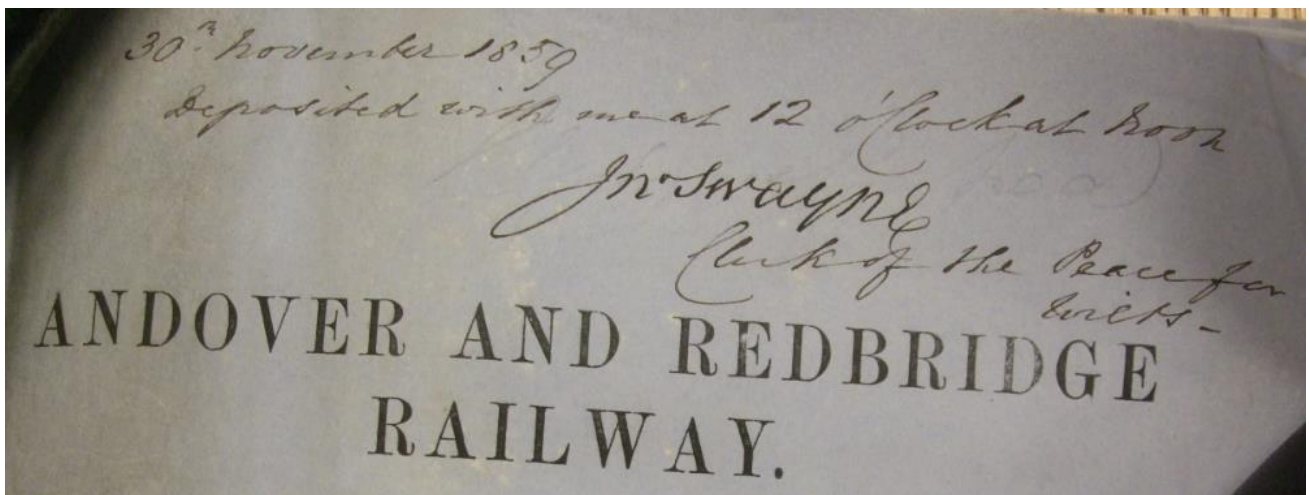 30th November 1859
Deposited with me at 12 o'Clock at Noon
Jno Swayne
Clerk of the Peace for
Wilts -
ANDOVER AND REDBRIDGE
RAILWAY.